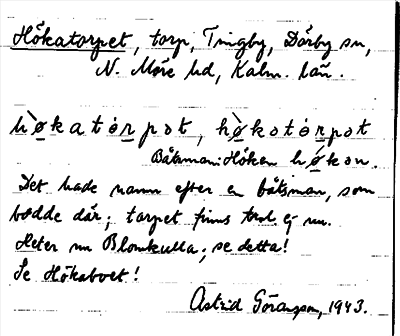 Hökatorpet, torp, Tingby, Dörby sn,
N. Möre hd, Kalm. län.
hø̀katȯrpət, hø̀kətȯrpət
Båtsman: Höken hø̀kən.
Det hade namn efter en båtsman, som
bodde där; torpet finns trol. ej nu.
Heter nu Blomkulla; se detta!
Se Hökaboet!
Astrid Göransson, 1943.